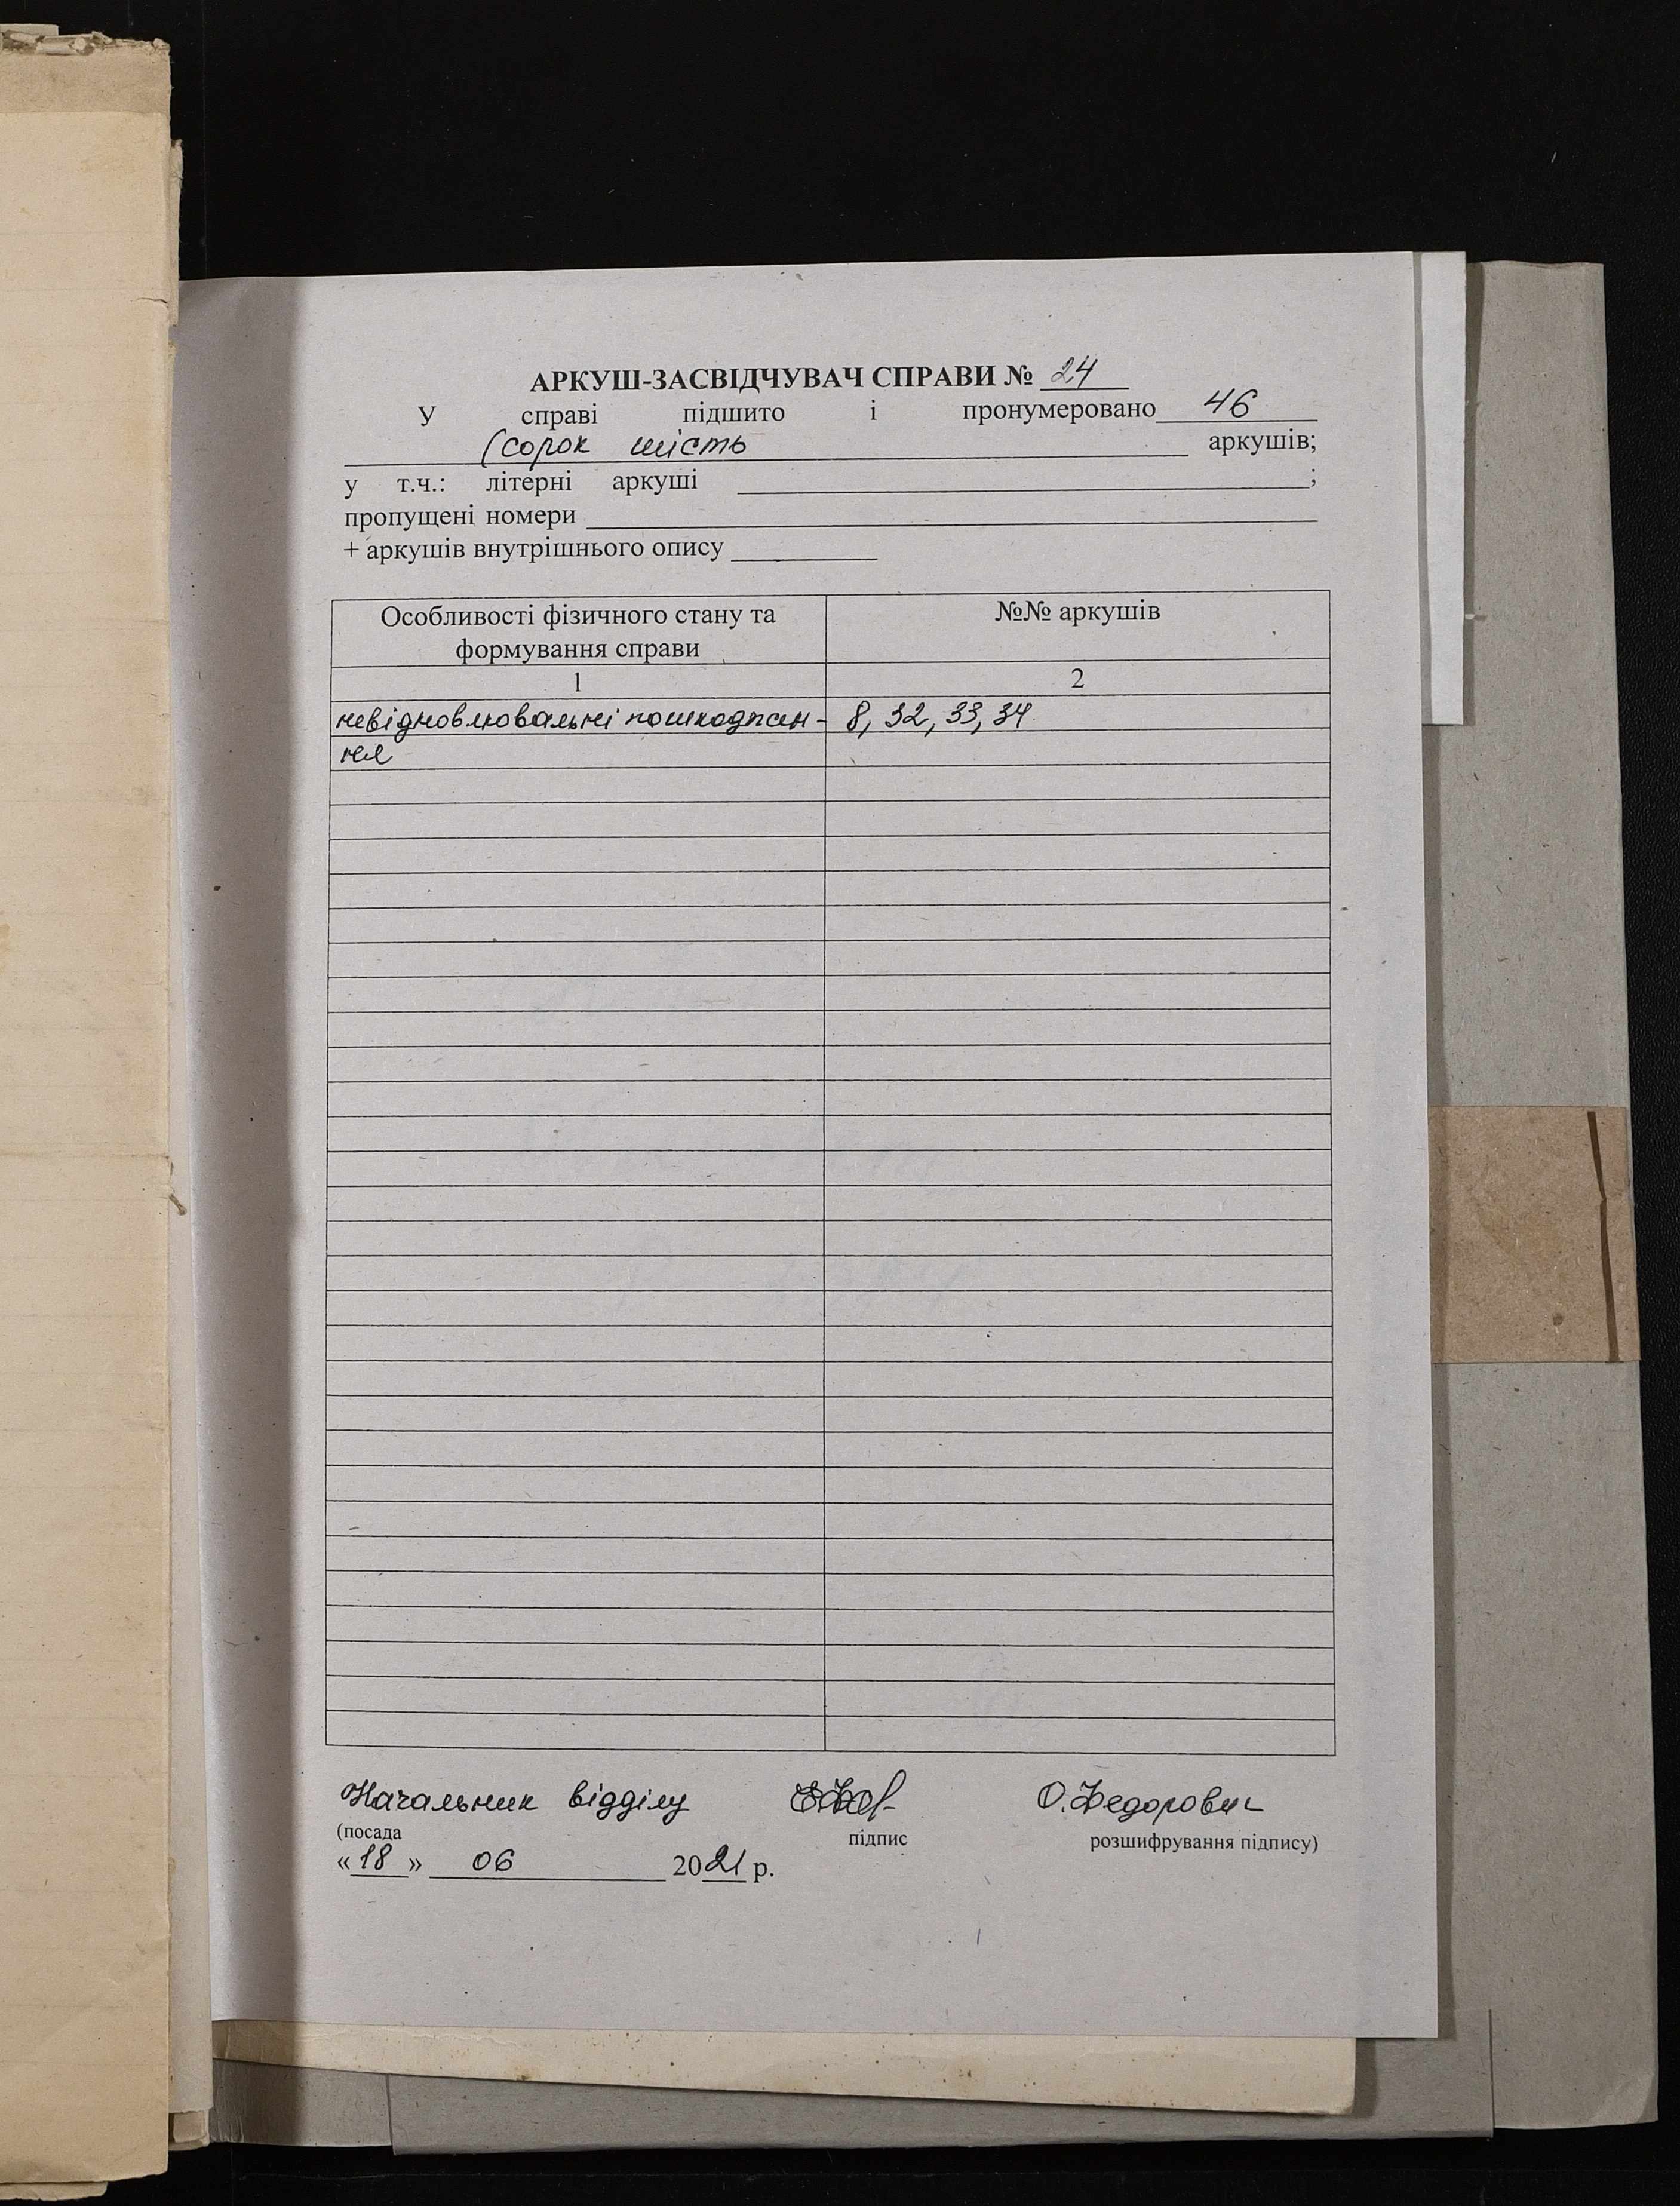 АРКУШ-ЗАСВІДЧУВАЧ СПРАВИ № 24
У справі підшито і пронумеровано 46
(сорок шість аркушів;
у т.ч.: літерні аркуші ;
пропущені номери
+ аркушів внутрішнього опису
Особливості фізичного стану та формування справи
№№ аркушів
1 2
невідновлювальні пошкоджен- 8, 32, 33, 34
ня
Начальник відділу О. Федорович
(посада підпис розшифрування підпису)
«18» 06 2021 р.